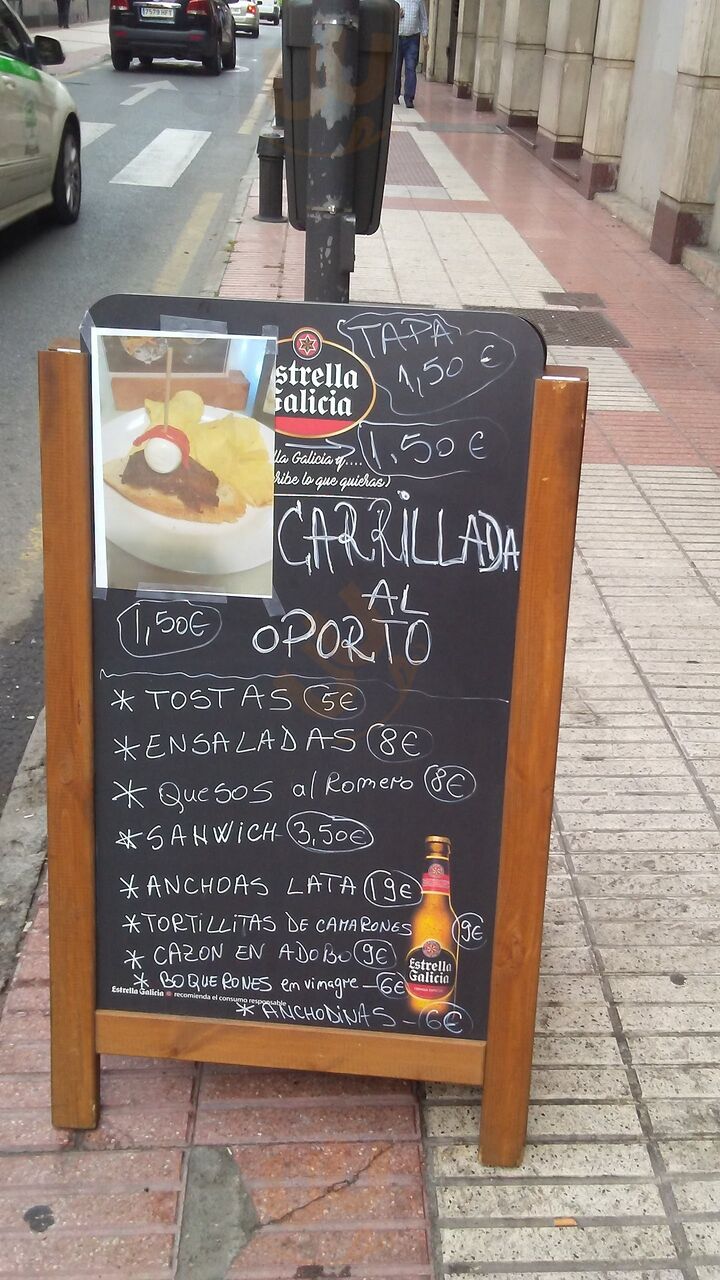 7579 HFT
TAPA
1,50 €
strella
Galicia
1,50 €
lla Galicia y....
ribe lo que quieras)
CARRILLADA
AL
OPORTO
1,50€
* TOSTAS 5€
* ENSALADAS 8€
* QUESOS al Romero 8€
* SANWICH 3,50€
* ANCHOAS LATA 19€
* TORTILLITAS DE CAMARONES 9€
* CAZON EN ADOBO 9€
* BOQUERONES en vinagre - 6€
Estrella Galicia recomienda el consumo responsable
* ANCHODINAS - 6€
Estrella
Galicia